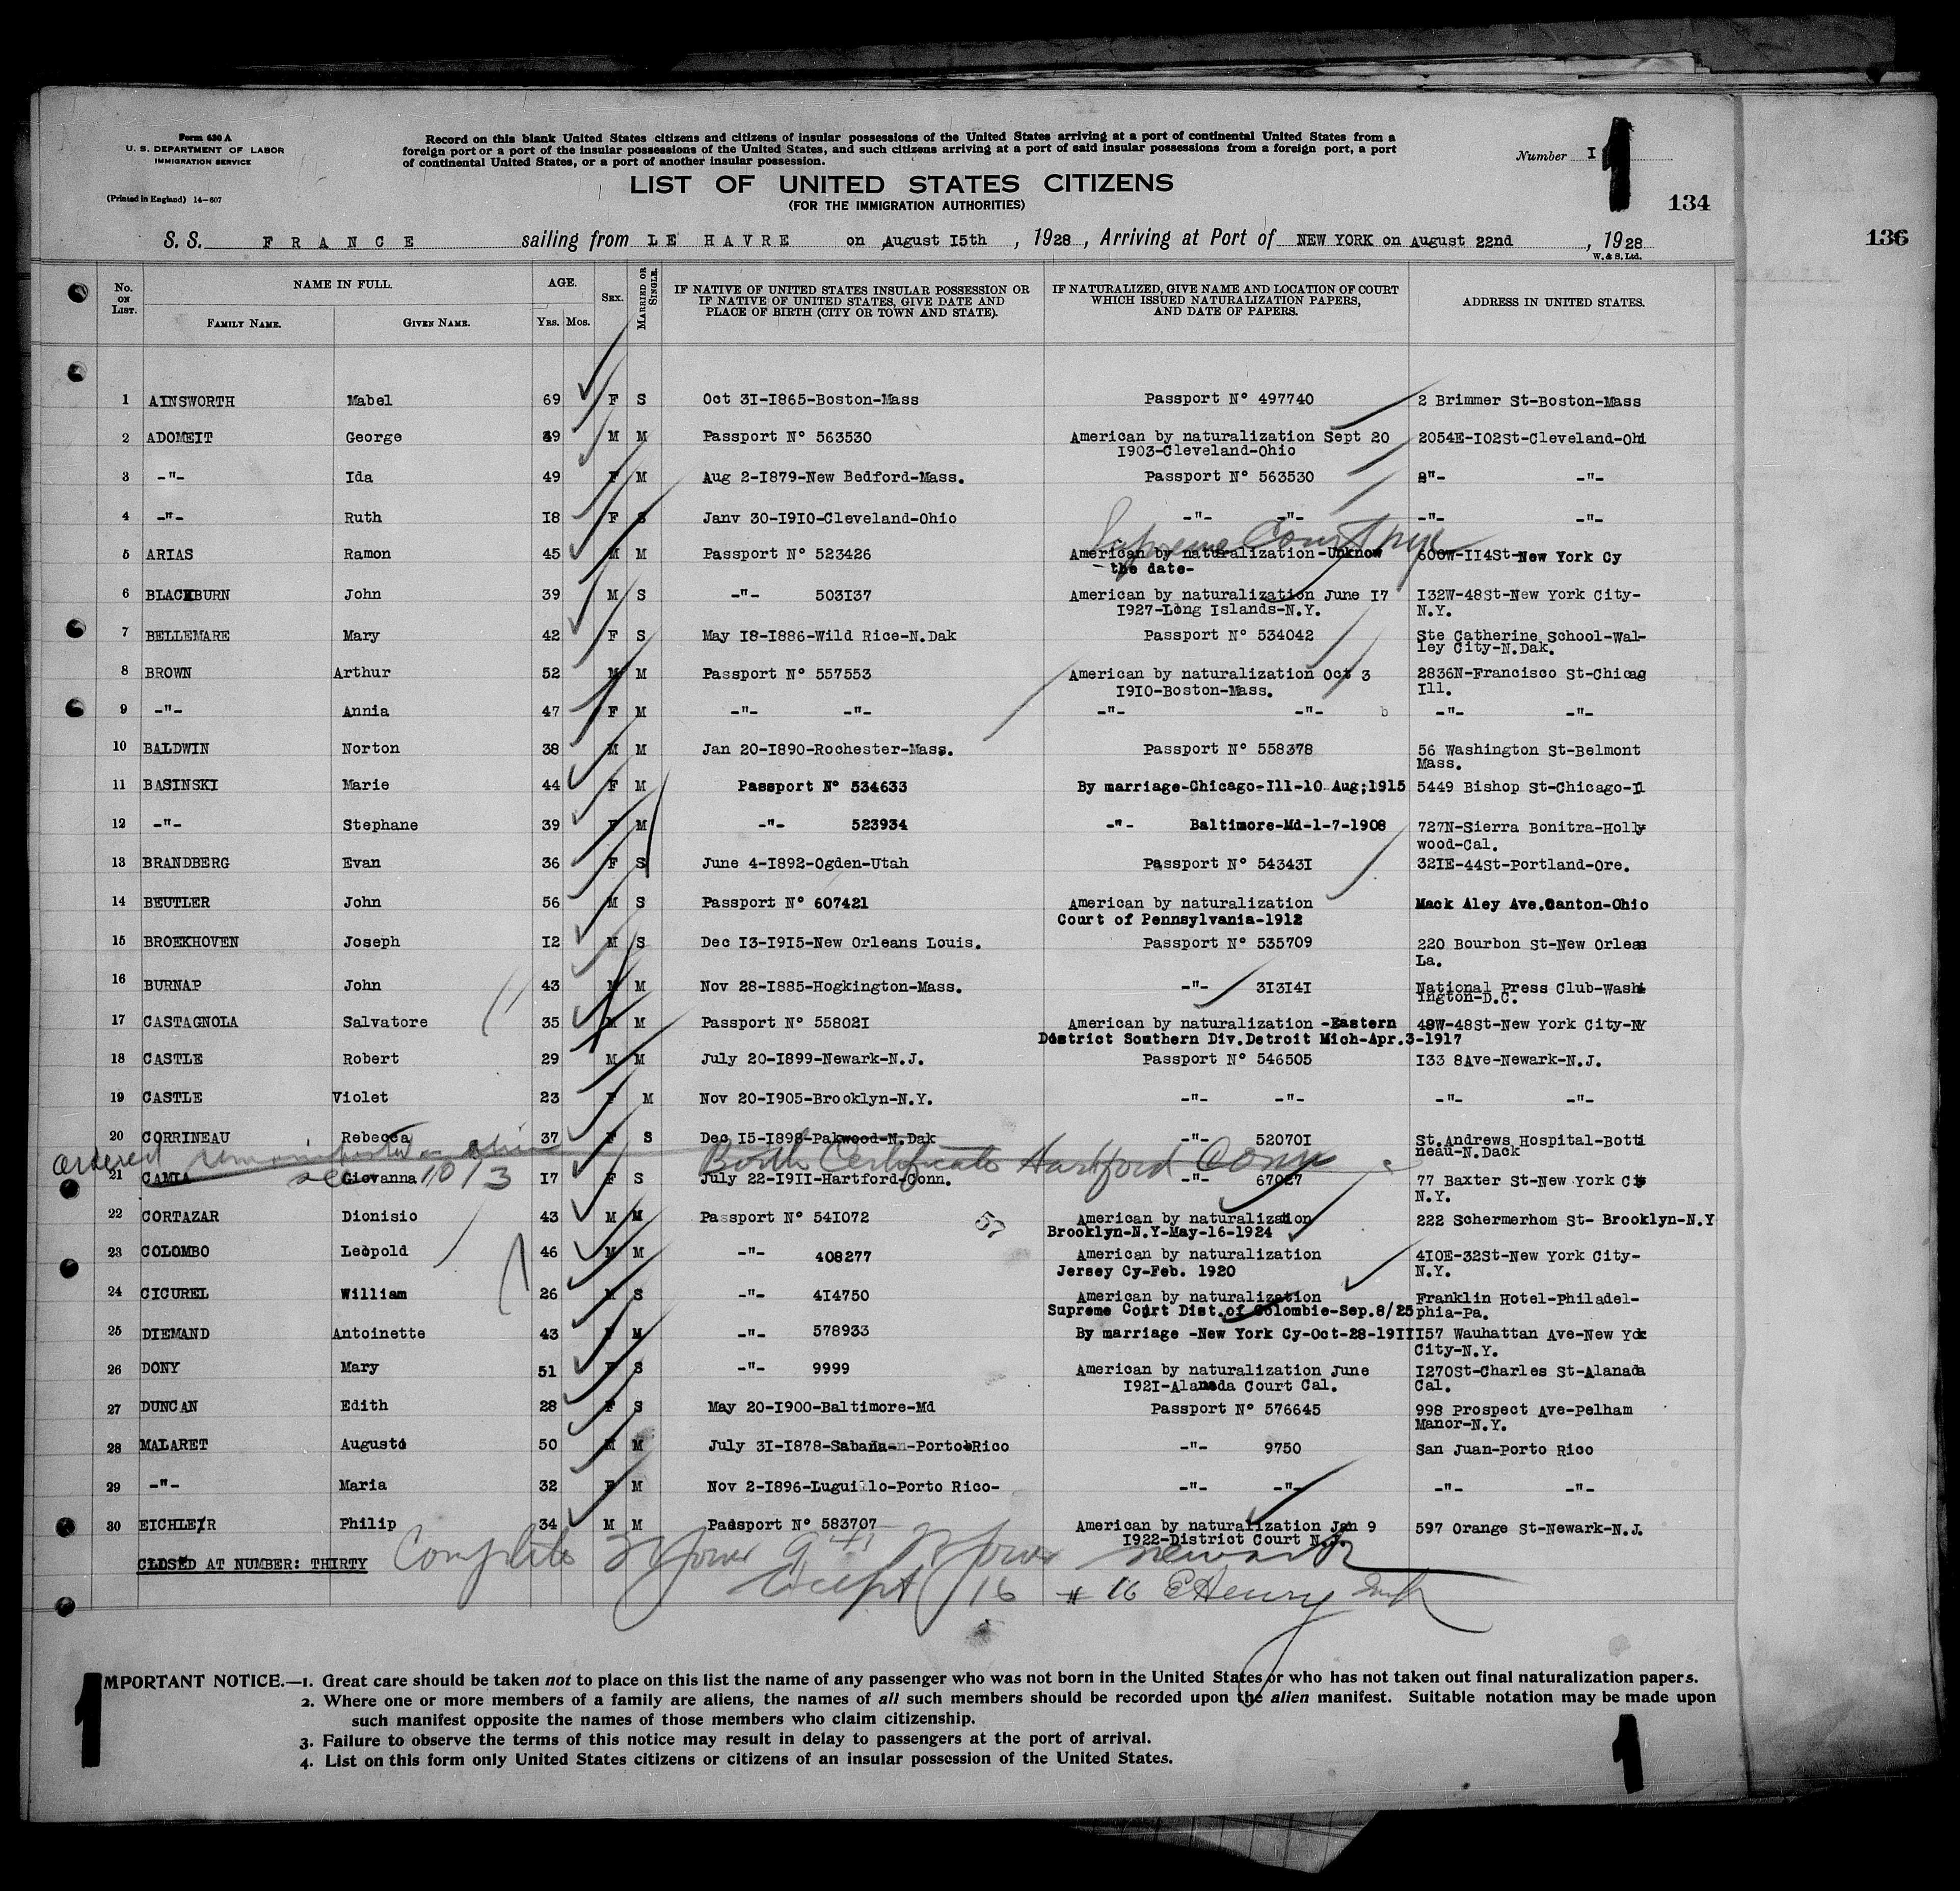 Form 630 A
U. S. DEPARTMENT OF LABOR
IMMIGRATION SERVICE
(Printed in England) 14—607
Record on this blank United States citizens and citizens of insular possessions of the United States arriving at a port of continental United States from a
foreign port or a port of the insular possessions of the United States, and such citizens arriving at a port of said insular possessions from a foreign port, a port
of continental United States, or a port of another insular possession.
Number I
1
134
136
LIST OF UNITED STATES CITIZENS
(FOR THE IMMIGRATION AUTHORITIES)
S. S. FRANCE sailing from LE HAVRE on August I5th, 1928, Arriving at Port of NEW YORK on August 22nd, 1928
W. & S. Ltd.
No. ON LIST. NAME IN FULL. AGE. SEX. MARRIED OR SINGLE. IF NATIVE OF UNITED STATES INSULAR POSSESSION OR IF NATIVE OF UNITED STATES, GIVE DATE AND PLACE OF BIRTH (CITY OR TOWN AND STATE). IF NATURALIZED, GIVE NAME AND LOCATION OF COURT WHICH ISSUED NATURALIZATION PAPERS, AND DATE OF PAPERS. ADDRESS IN UNITED STATES.
FAMILY NAME. GIVEN NAME. YRS. MOS.
1 AINSWORTH Mabel 69 F S Oct 3I-I865-Boston-Mass Passport N° 497740 2 Brimmer St-Boston-Mass
2 ADOMEIT George 49 M M Passport N° 563530 American by naturalization Sept 20 2054E-I02St-Cleveland-Ohi
I903-Cleveland-Ohio
3 -"- Ida 49 F M Aug 2-I879-New Bedford-Mass. Passport N° 563530 -"- -"-
4 -"- Ruth I8 F S Janv 30-I9I0-Cleveland-Ohio -"- -"- -"- -"-
Supreme Court
5 ARIAS Ramon 45 M M Passport N° 523426 American by naturalization -Unknow 600W-II4St-New York Cy
the date-
6 BLACKBURN John 39 M S -"- 503I37 American by naturalization June I7 I32W-48St-New York City-
I927-Long Islands-N.Y. N.Y.
7 BELLEMARE Mary 42 F S May I8-I886-Wild Rice-N.Dak Passport N° 534042 Ste Catherine School-Wal-
ley City-N.Dak.
8 BROWN Arthur 52 M M Passport N° 557553 American by naturalization Oct 3 2836N-Francisco St-Chicag
I9I0-Boston-Mass. Ill.
9 -"- Annia 47 F M -"- -"- -"- -"- b -"- -"-
10 BALDWIN Norton 38 M M Jan 20-I890-Rochester-Mass. Passport N° 558378 56 Washington St-Belmont
Mass.
11 BASINSKI Marie 44 F M Passport N° 534633 By marriage-Chicago-Ill-10 Aug;1915 5449 Bishop St-Chicago-Il
12 -"- Stephane 39 F M -"- 523934 -"- Baltimore-Md-1-7-1908 727N-Sierra Bonitra-Holly
wood-Cal.
13 BRANDBERG Evan 36 F S June 4-I892-Ogden-Utah Passport N° 54343I 32IE-44St-Portland-Ore.
14 BEUTLER John 56 M S Passport N° 607421 American by naturalization Mack Aley Ave.Canton-Ohio
Court of Pennsylvania-1912
15 BROEKHOVEN Joseph I2 M S Dec I3-I9I5-New Orleans Louis. Passport N° 535709 220 Bourbon St-New Orleas
La.
16 BURNAP John 43 M M Nov 28-I885-Hogkington-Mass. -"- 3I3I4I National Press Club-Wash
ington-D.C.
17 CASTAGNOLA Salvatore 35 M M Passport N° 55802I American by naturalization -Eastern 48W-48St-New York City-NY
District Southern Div.Detroit Mich-Apr.3-1917
18 CASTLE Robert 29 M M July 20-I899-Newark-N.J. Passport N° 546505 I33 8Ave-Newark-N.J.
19 CASTLE Violet 23 F M Nov 20-I905-Brooklyn-N.Y. -"- -"- -"- -"-
20 CORRINEAU Rebecca 37 F S Dec I5-I898-Pakwood-N.Dak -"- 52070I St.Andrews Hospital-Botti
neau-N.Dack
ordered Birth Certificate Hartford Conn
21 CAMIA Giovanna I7 F S July 22-I9II-Hartford-Conn. -"- 67027 77 Baxter St-New York Cy
10/3 N.Y.
22 CORTAZAR Dionisio 43 M M Passport N° 54I072 57 American by naturalization 222 Schermerhom St- Brooklyn-N.Y
Brooklyn-N.Y-May-16-1924
23 COLOMBO Leopold 46 M M -"- 408277 American by naturalization 4I0E-32St-New York City-
Jersey Cy-Feb. 1920 N.Y.
24 CICUREL William 26 M S -"- 4I4750 American by naturalization Franklin Hotel-Philadel-
Supreme Court Dist.of Colombie-Sep.8/25 phia-Pa.
25 DIEMAND Antoinette 43 F M -"- 578933 By marriage -New York Cy-Oct-28-19II II57 Wauhattan Ave-New Yok
City-N.Y.
26 DONY Mary 51 F S -"- 9999 American by naturalization June I270St-Charles St-Alanada
I92I-Alanada Court Cal. Cal.
27 DUNCAN Edith 28 F S May 20-I900-Baltimore-Md Passport N° 576645 998 Prospect Ave-Pelham
Manor-N.Y.
28 MALARET Augusto 50 M M July 3I-I878-Sabana-n-Porto Rico -"- 9750 San Juan-Porto Rico
29 -"- Maria 32 F M Nov 2-I896-Luguillo-Porto Rico- -"- -"- -"- -"-
30 EICHLER Philip 34 M M Passport N° 583707 American by naturalization Jan 9 597 Orange St-Newark-N.J.
I922-District Court N.J.
CLOSED AT NUMBER: THIRTY Complete Newark
Except 16 # 16 EHenry
IMPORTANT NOTICE.—1. Great care should be taken not to place on this list the name of any passenger who was not born in the United States or who has not taken out final naturalization papers.
2. Where one or more members of a family are aliens, the names of all such members should be recorded upon the alien manifest. Suitable notation may be made upon
such manifest opposite the names of those members who claim citizenship.
3. Failure to observe the terms of this notice may result in delay to passengers at the port of arrival.
4. List on this form only United States citizens or citizens of an insular possession of the United States.
1
1